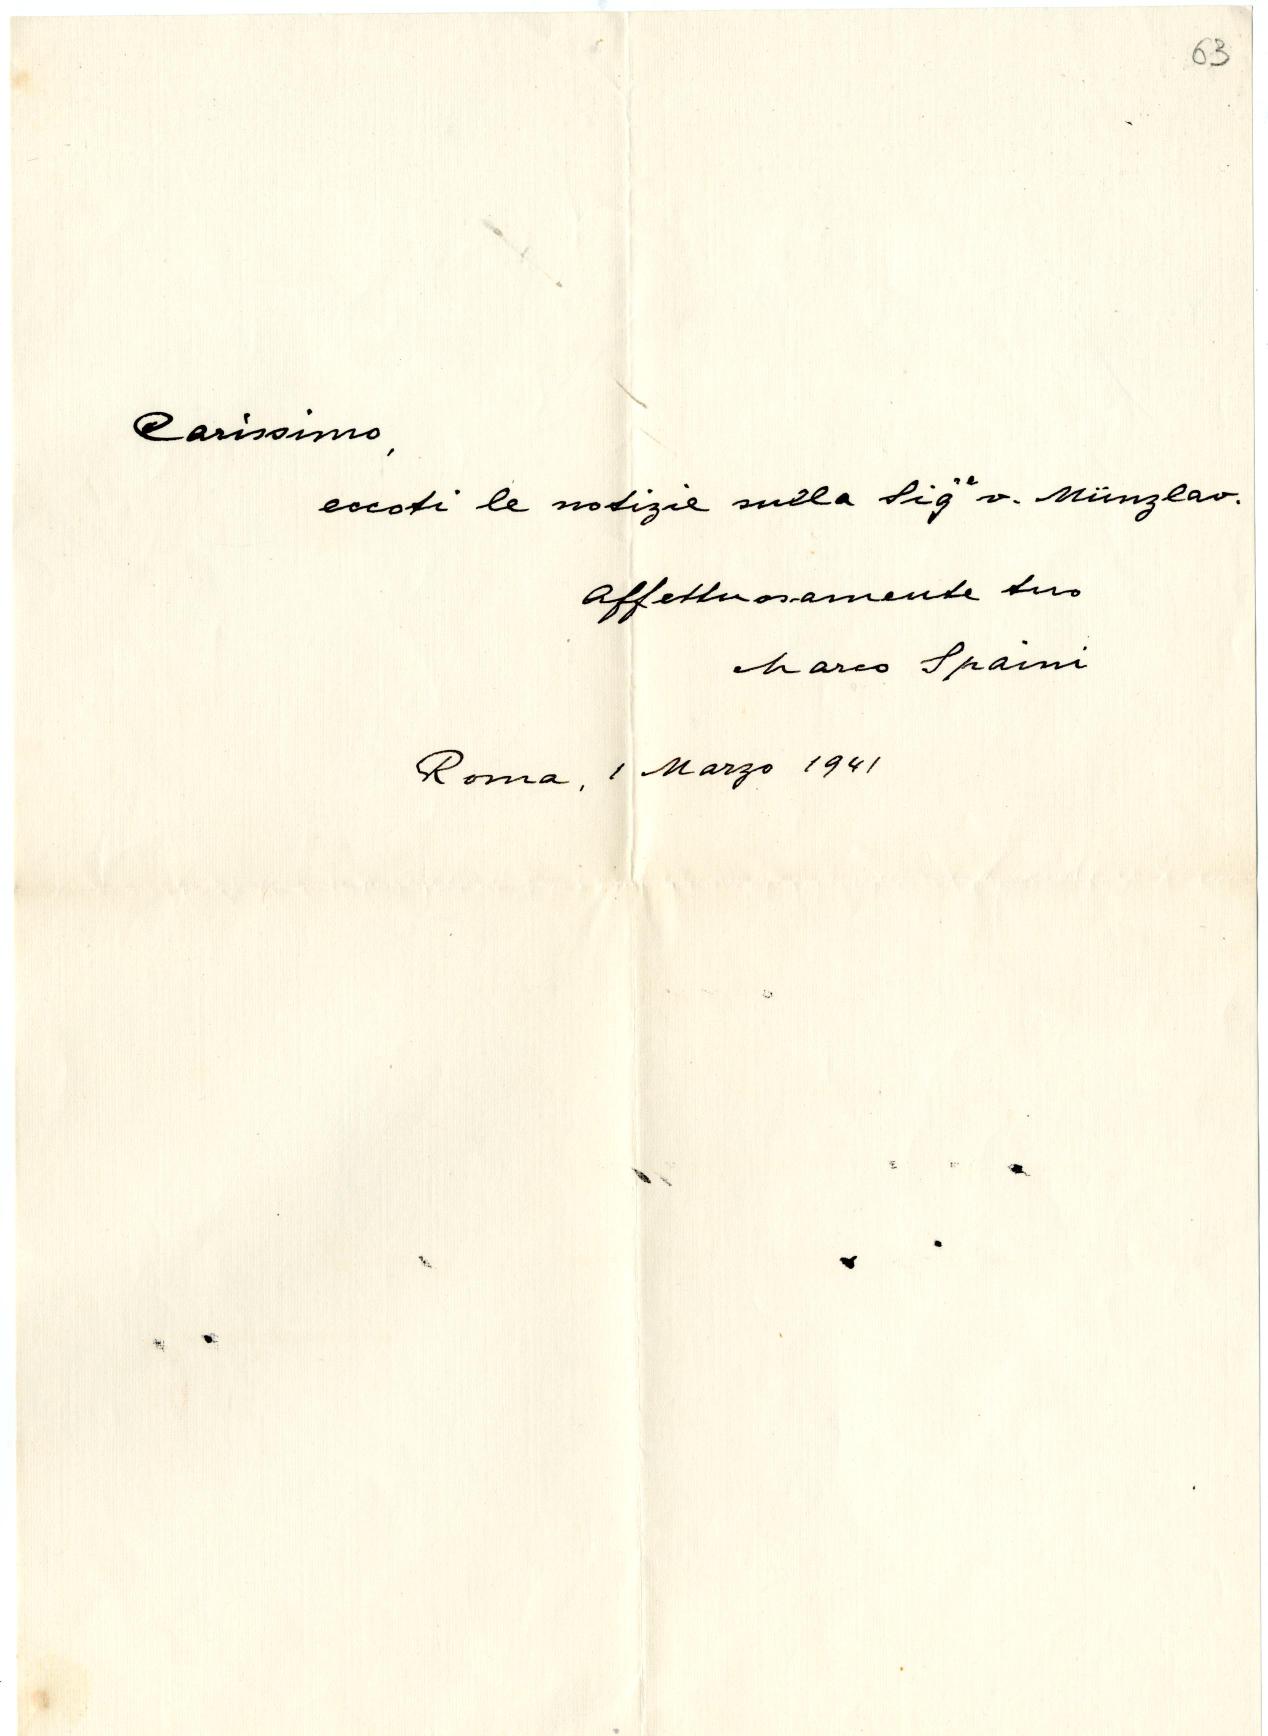 63
Carissimo,
eccoti le notizie sulla Sigª v. Münzlav.
Affettuosamente tuo
Marco Spaini
Roma, 1 Marzo 1941